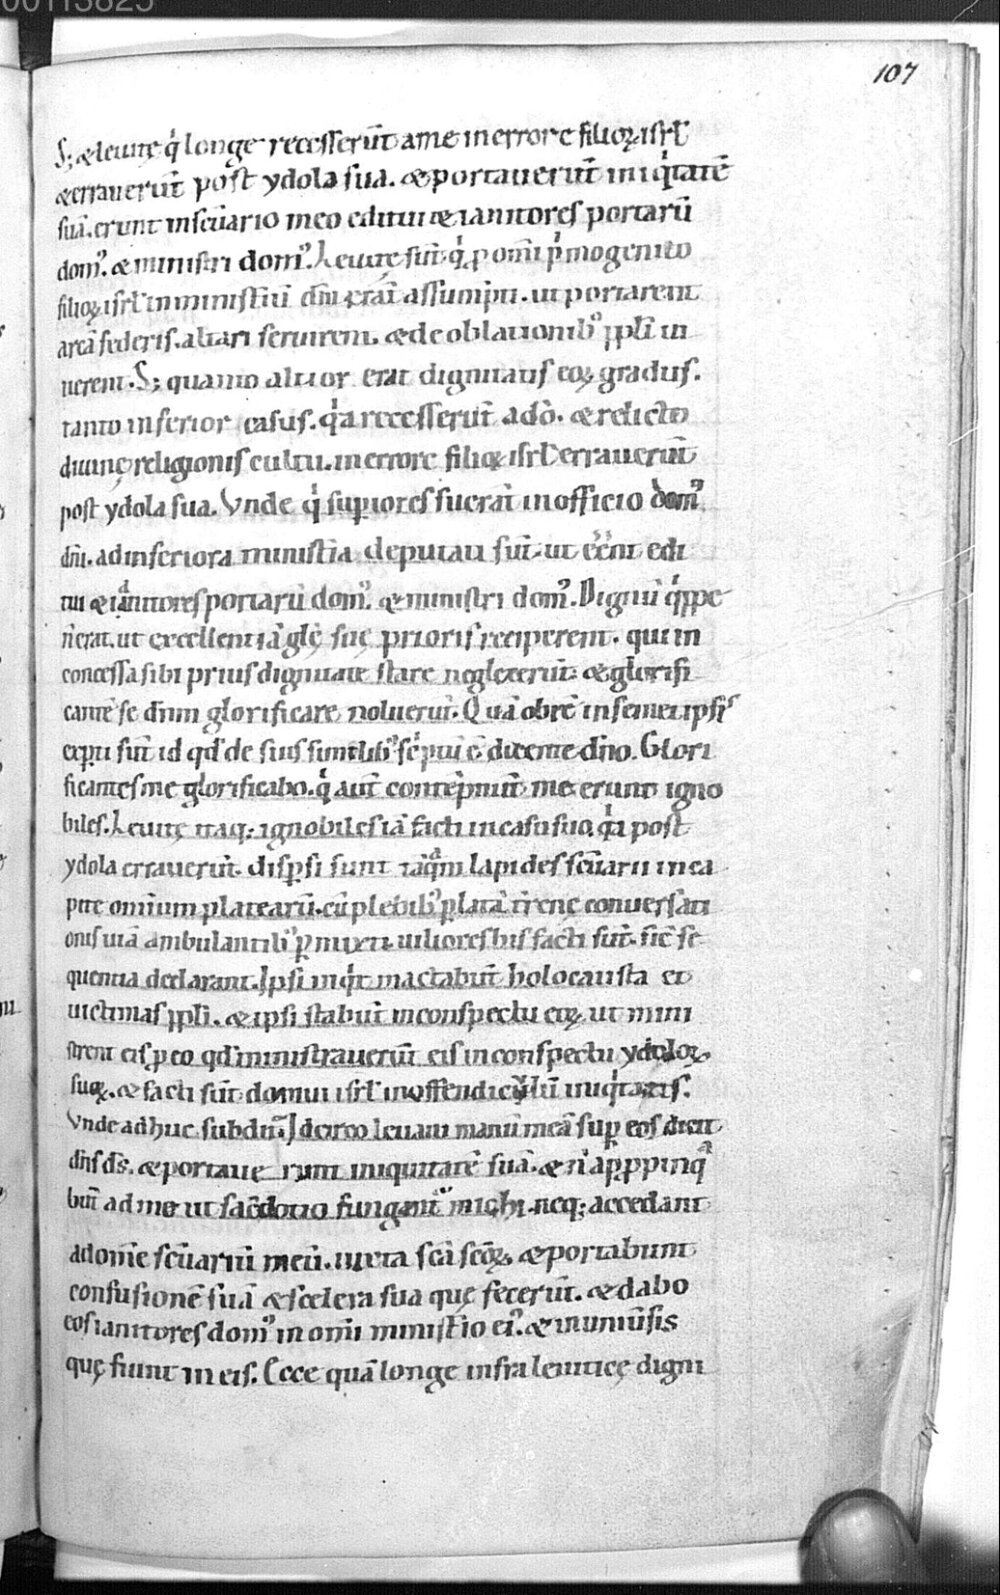 107
S; & leuitę q̍ longe recesserūt a me in errore filioꝝ isrl̄
& erraverūt post ydola sua. & portaverūt iniq̍tatē
suā. erunt in sc̄uario meo editui & ianitores portarū
dom᾽. & ministri dom᾽. Leuitę sūt q̍ ꝓ om̄i p̍mogenito
filioꝝ isrl̄ in ministiū dn̄i erāt assumpti. ut portarent
arcā federis. altari seruirent. & de oblationib᾽ ppl̄i ui
uerent. S; quanto altior erat dignitatis eoꝝ gradus.
tanto inferior casus. q̍a recesserūt a dō. & relicto
diuinę religionis cultu. in errore filioꝝ isrl̄ erraverūt
post ydola sua. Vnde q̍ supiores fuerāt in officio dom᾽
dn̄i. ad inferiora ministia deputati sūt. ut eēnt edi
tui & ianitores portarū dom᾽. & ministri dom᾽. Dignū q̍ppe
n̄ erat. ut excellentiā glę suę prioris reciperent. qui in
concessa sibi prius dignitate stare neglexerūt. & glorifi
cantē se dn̄m glorificare noluerūt. Quā ob rē in semet ipsis
experti sūt id qd̕ de suis similib᾽ sc̍ptū ē dicente dn̄o. Glori
ficantes me glorificabo. q̍ aūt contēpnūt me erunt igno
biles. Leuitę itaq; ignobiles iā facti in casu suo. q̍a post
ydola erraverūt. dispsi sunt tāqm lapides sc̄uarii in ca
pite omnium platearū. cū plebib᾽ platā t̄renę conuersati
onis uiā ambulantib᾽ pmixti. uiliores his facti sūt. sic̄ se
quentia declarant. Ipsi inq̍t mactabūt holocausta et
uictimas ppl̄i. & ipsi stabūt in conspectu eoꝝ. ut mini
strent eis ꝓ eo qd̕ ministraverūt eis in conspectu ydoloꝝ
suoꝝ. & facti sūt domui isrl̄ in offendiculū iniq̍tatis.
Vnde adhuc subdit̄. Idcirco leuaui manū meā sup eos dicit
dn̄s ds̄. & portave runt iniquitatē suā. & n̄ appropinq
būt ad me ut sac̄dotio fungant᾽ michi. neq; accedant
ad om̄e sc̄uariū meū. iuxta sc̄a sc̄oꝝ. & portabunt
confusionē suā & scelera sua quę fecerūt. & dabo
eos ianitores dom᾽ in om̄i ministio ei᾽. & in uniūsis
quę fiunt in eis. Ecce quā longe infra leuiticę digni